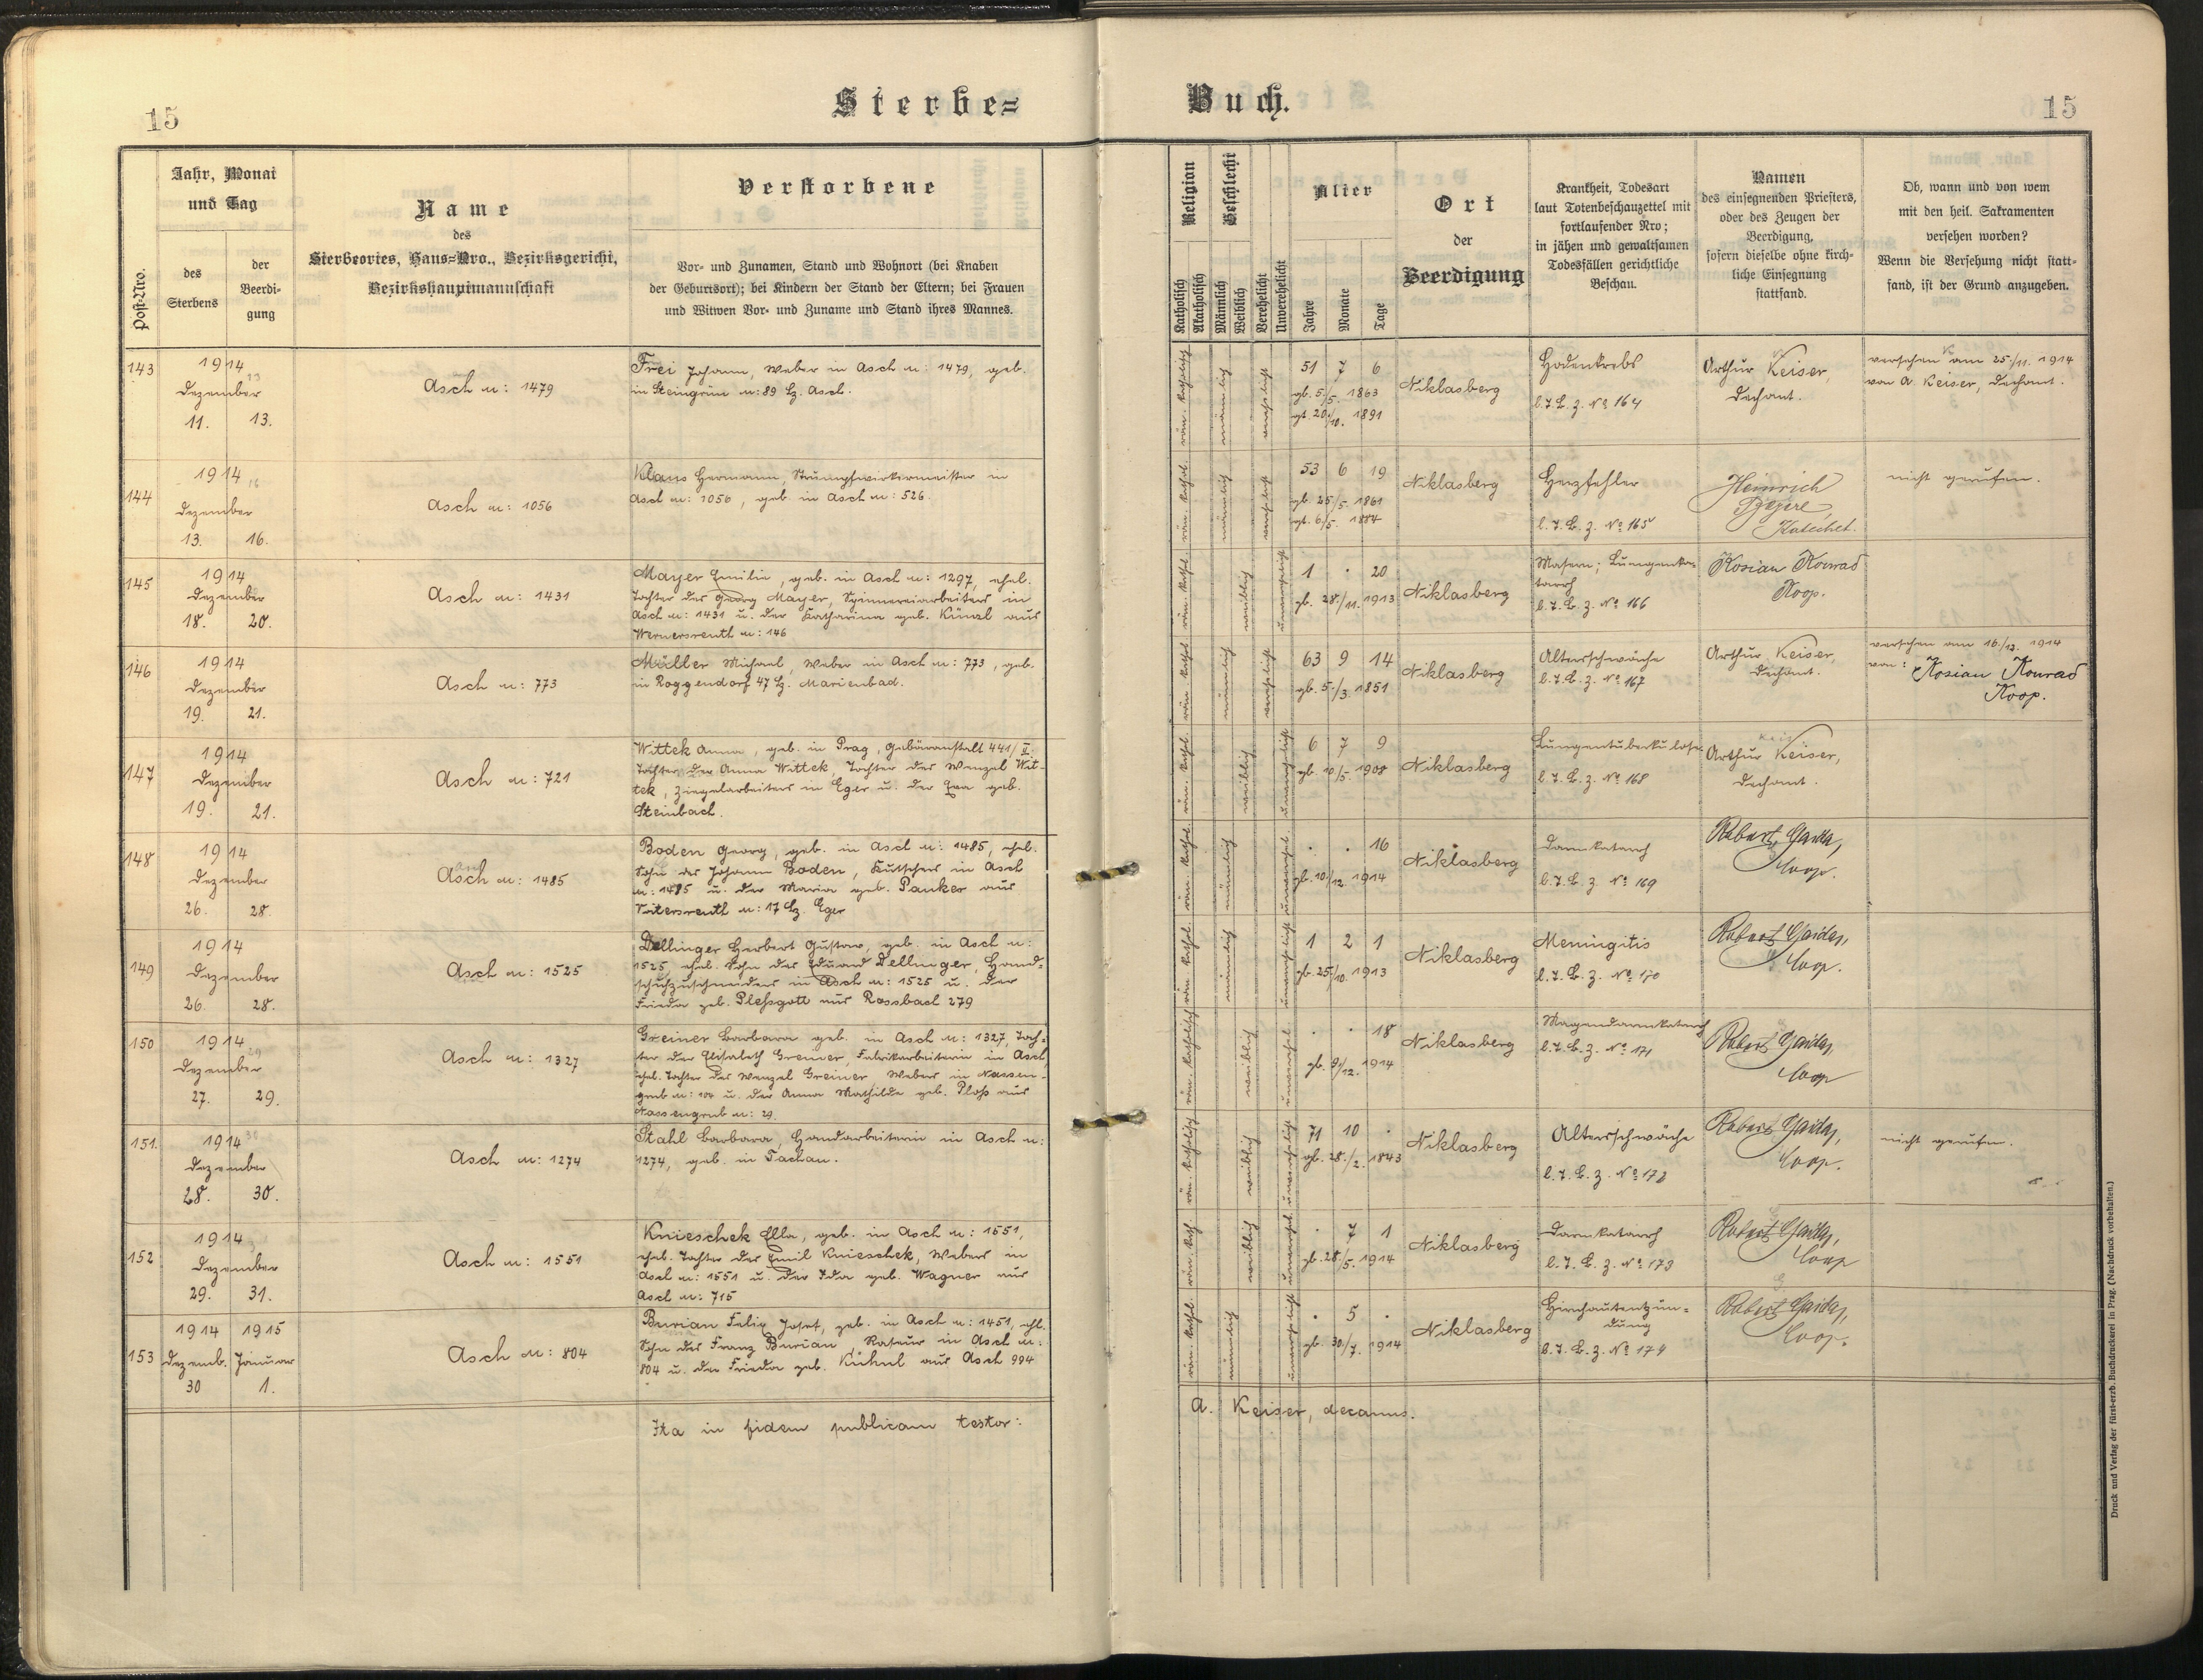 15
Sterbe=
Buch.
15
Post-Nro.
Jahr, Monat
und Tag
des
Sterbens
der
Beerdi-
gung
Name
des
Sterbeortes, Haus=Nro., Bezirksgericht,
Bezirkshauptmannschaft
Verstorbene
Vor- und Zunamen, Stand und Wohnort (bei Knaben
der Geburtsort); bei Kindern der Stand der Eltern; bei Frauen
und Witwen Vor- und Zuname und Stand ihres Mannes.
Religion
Katholisch
Akatholisch
Geschlecht
Männlich
Weiblich
Verehelicht
Unverehelicht
Alter
Jahre
Monate
Tage
Ort
der
Beerdigung
Krankheit, Todesart
laut Totenbeschauzettel mit
fortlaufender Nro;
in jähen und gewaltsamen
Todesfällen gerichtliche
Beschau.
Namen
des einsegnenden Priesters,
oder des Zeugen der
Beerdigung,
sofern dieselbe ohne kirch-
liche Einsegnung
stattfand.
Ob, wann und von wem
mit den heil. Sakramenten
versehen worden?
Wenn die Versehung nicht statt-
fand, ist der Grund anzugeben.
143
1914
Dezember
11. 13.
Asch n: 1479
Frei Johann, Weber in Asch n: 1479, geb.
in Steingrün n: 89 Bz. Asch.
röm. katholisch
männlich
verehelicht
51 7 6
gb. 5./5. 1863
gt. 20./10. 1891
Niklasberg
Hodenkrebs
l. T. B. z. No 164
Arthur Keiser,
Dechant.
versehen am 25./11. 1914
von A. Keiser, Dechant.
144
1914
Dezember
13. 16.
Asch n: 1056
Klaus Hermann, Strumpfwirkermeister in
Asch n: 1056, geb. in Asch n: 526.
röm. kathol.
männlich
verehelicht
53 6 19
gb. 25/5. 1861
gt. 6/5. 1884
Niklasberg
Herzfehler
l. T. B. z. No 165
Heinrich
Katechet.
nicht gerufen.
145
1914
Dezember
18. 20.
Asch n: 1431
Mayer Emilie, geb. in Asch n: 1297, ehel.
Tochter des Georg Mayer, Spinnereiarbeiters in
Asch n: 1431 u. der Katharina geb. Künzl aus
Wernersreuth n: 146
röm. kathol.
weiblich
unverehelicht
1 . 20
gb. 28./11. 1913
Niklasberg
Masern; Lungenka-
tarrh
l. T. B. z. No 166
Kosian Konrad
Koop.
146
1914
Dezember
19. 21.
Asch n: 773
Müller Michael, Weber in Asch n: 773, geb.
in Roggendorf 47 Bz. Marienbad.
röm. kathol.
männlich
verehelicht
63 9 14
gb. 5./3. 1851
Niklasberg
Altersschwäche
l. T. B. z. No 167
Arthur Keiser,
Dechant.
versehen am 16/12. 1914
von: Kosian Konrad
Koop.
147
1914
Dezember
19. 21.
Asch n: 721
Wittek Anna, geb. in Prag, Gebäranstalt 441/II.
Tochter der Anna Wittek, Tochter des Wenzel Wit-
tek, Ziegelarbeiters in Eger u. der Eva geb.
Steinbach.
röm. kathol.
weiblich
unverehelicht
6 7 9
gb. 10/5. 1908
Niklasberg
Lungentuberkulose
l. T. B. z. No 168
Arthur Keiser,
Dechant.
148
1914
Dezember
26. 28.
Asch n: 1485
Boden Georg, geb. in Asch n: 1485, ehel.
Sohn des Johann Boden, Kutschers in Asch
n: 1485 u. der Maria geb. Panker aus
Voitersreuth n: 17 Bz. Eger
röm. kathol.
männlich
unverehel.
. . 16
gb. 10./12. 1914
Niklasberg
Darmkatarrh
l. T. B. z. No 169
Robert Gaida,
Coop.
149
1914
Dezember
26. 28.
Asch n: 1525
Dellinger Herbert Gustav, geb. in Asch n:
1525, ehel. Sohn des Eduard Dellinger, Hand-
schuhzuschneiders in Asch n: 1525 u. der
Frieda geb. Pleßgott aus Rossbach 279
röm. kathol.
männlich
unverehelicht
1 2 1
gb. 25/10. 1913
Niklasberg
Meningitis
l. T. B. z. No 170
Robert Gaida,
Coop.
150
1914
Dezember
27. 29.
Asch n: 1327
Greiner Barbara geb. in Asch n: 1327, Toch-
ter der Elisabeth Greiner, Fabrikarbeiterin in Asch,
ehel. Tochter des Wenzel Greiner Webers in Nassen-
grub n: 100 u. der Anna Mathilde geb. Ploß aus
Nassengrub n: 29.
röm. katholisch
weiblich
unverehel.
. . 18
gb. 9/12. 1914
Niklasberg
Magendarmkatarrh
l. T. B. z. No 171
Robert Gaida,
Coop
151.
1914
Dezember
28. 30.
Asch n: 1274
Stahl Barbara, Handarbeiterin in Asch n:
1274, geb. in Tachau.
röm. katholisch
weiblich
unverehelicht
71 10 .
gb. 28./2. 1843
Niklasberg
Altersschwäche
l. T. B. z. No 172
Robert Gaida,
Coop.
nicht gerufen.
152
1914
Dezember
29. 31.
Asch n: 1551
Knieschek Ella, geb. in Asch n: 1551,
ehel. Tochter des Emil Knieschek, Webers in
Asch n: 1551 u. der Ida geb. Wagner aus
Asch n: 715
röm. kath.
weiblich
unverehel.
. 7 1
gb. 28/5. 1914
Niklasberg
Darmkatarrh
l. T. B. z. No 173
Robert Gaida,
Coop
153
1914 1915
Dezemb. Januar
30 1.
Asch n: 804
Burian Felix Josef, geb. in Asch n: 1451, ehl.
Sohn des Franz Burian Raseur in Asch n:
804 u. der Frieda geb. Kühnl aus Asch 994
röm. kathol.
männlich
unverehelicht
. 5 .
gb. 30/7. 1914
Niklasberg
Hirnhautentzün-
dung
l. T. B. z. No 174
Robert Gaida,
Coop.
Ita in fidem publicam testor:
A. Keiser, decanus.
Druck und Verlag der fürst-erzb. Buchdruckerei in Prag. (Nachdruck vorbehalten.)